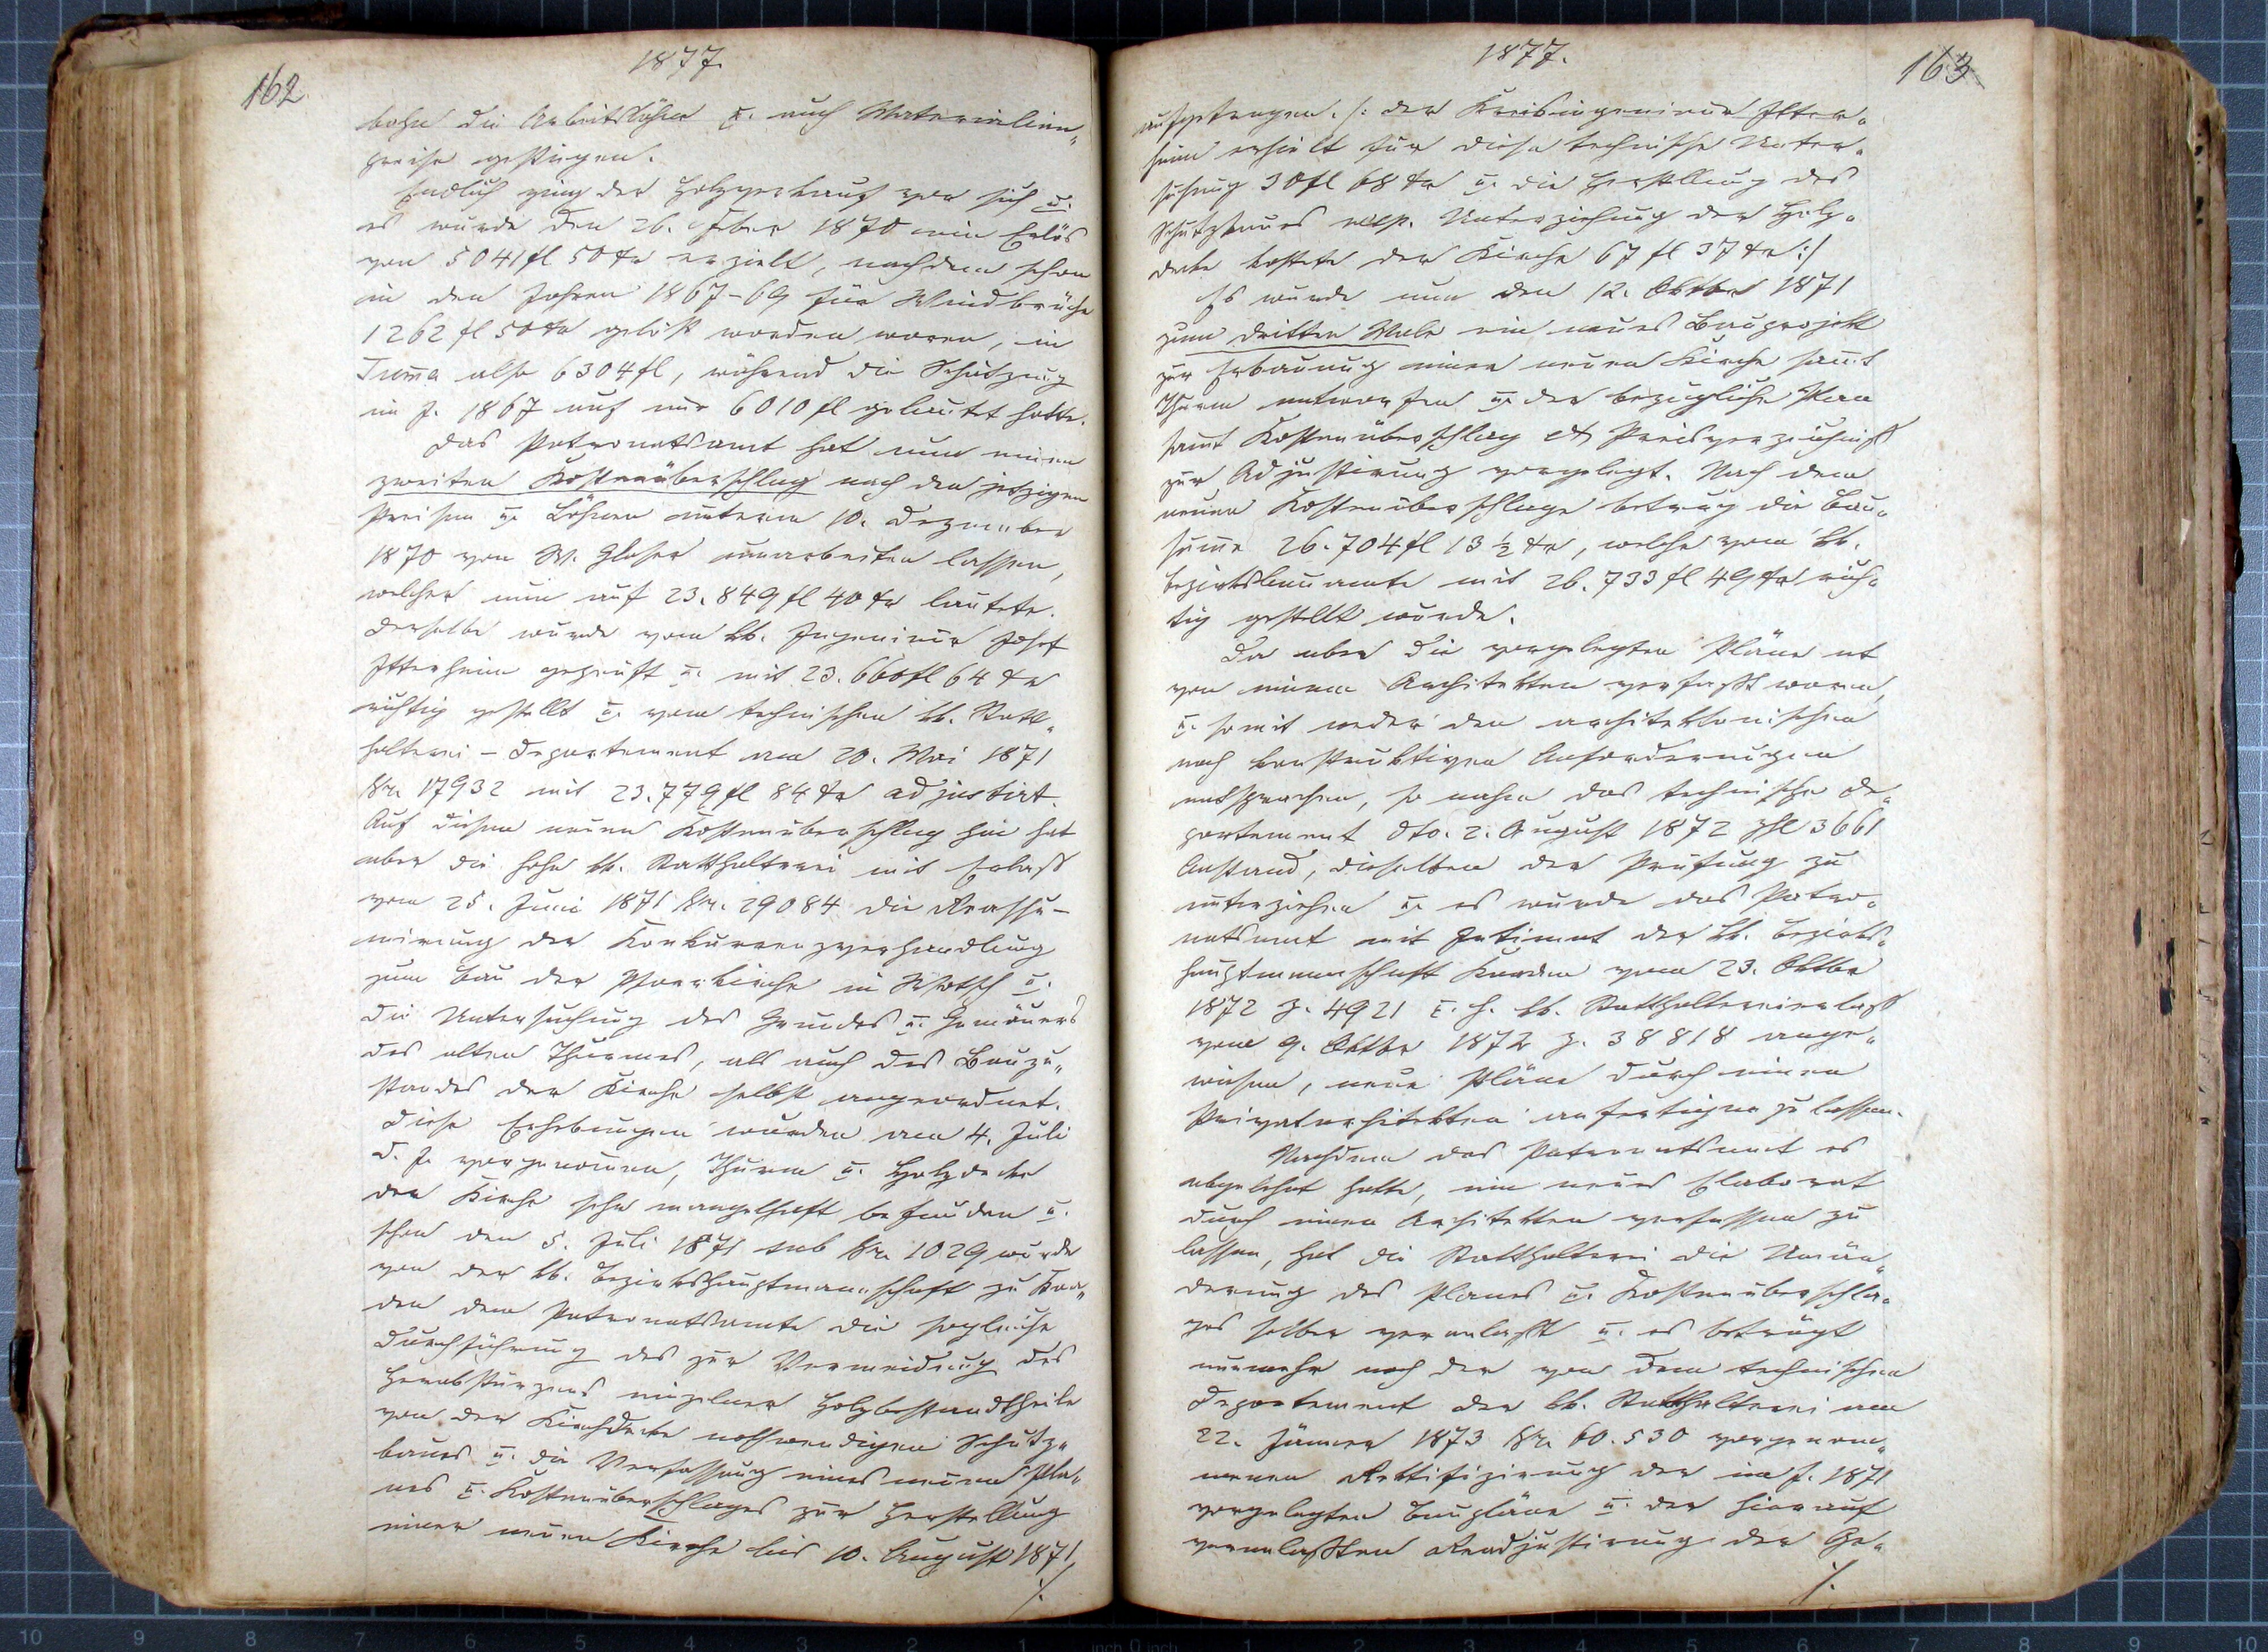 162
1877.
bahn die Arbeitslöhne u. auch Materialien„
preise gestiegen.
Endlich ging der Holzverkauf vor sich u.
es wurde den 26. Feber 1870 ein Erlös
von 5041 fl 50 kr erzielt, nachdem schon
in den Jahren 1867-69 für Windbrüche
1262 fl 50 kr gelöst worden waren, in
Summa also 6304 fl, während die Schätzung
im J. 1867 auf nur 6010 fl gelautet hatte.
Das Patronatsamt hat nun einen
zweiten Kostenüberschlag nach den jetzigen
Preisen u. Löhnen unterm 10. Dezember
1870 von W. Glaser umarbeiten lassen,
welcher nun auf 23.849 fl 40 kr lautete.
Derselbe wurde vom kk. Ingenieur Josef
Itterheim geprüft u. mit 23.660 fl 64 kr
richtig gestellt u. vom technischen kk. Statt„
halterei-Departement am 20. Mai 1871
Nr. 17932 mit 23.779 fl 84 kr adjustirt.
Auf diesen neuen Kostenüberschlag hin hat
aber die hohe kk. Statthalterei mit Erlaß
vom 25. Juni 1871 Nr. 29084 die Reassu-
mirung der Konkurrenzverhandlung
zum Bau der Pfarrkirche in Wotsch u.
die Untersuchung des Grundes u. Gemäuers
des alten Thurmes, als auch des Bauzu„
standes der Kirche selbst angeordnet.
Diese Erhebungen wurden am 4. Juli
d. J. vorgenommen, Thurm u. Holzdecke
der Kirche sehr mangelhaft befunden u.
schon den 5. Juli 1871 sub Nr. 1029 wurde
von der kk. Bezirkshauptmannschaft zu Kaa„
den dem Patronatsamte die sogleiche
Durchführung des zur Vermeidung des
Herabstürzens einzelner Holzbestandtheile
von der Kirchdecke nothwendigen Schutz„
baues u. die Verfassung eines neuen Pla„
nes u. Kostenüberschlages zur Herstellung
einer neuen Kirche bis 10. August 1871,
./.
1877.
163
aufgetragen. /: Der Kreisingenieur Itter„
heim erhielt für diese technische Unter„
suchung 30 fl 68 kr u. die Herstellung des
Schutzbaues resp. Unterziehung der Holz„
decke kostete der Kirche 67 fl 37 kr :/
Es wurde nun den 12. Oktber 1871
zum dritten Male ein neues Bauprojekt
zur Erbauung einer neuen Kirche samt
Thurm entworfen u. der bezügliche Plan
samt Kostenüberschlag et Preisverzeichniß
zur Adjustirung vorgelegt. Nach dem
neuen Kostenüberschlage betrug die Bau„
summe 26.704 fl 13 ½ kr, welche vom kk.
Bezirksbauamte mit 26.733 fl 49 kr rich„
tig gestellt wurde.
Da aber die vorgelegten Pläne nt
von einem Architekten verfaßt waren,
u. somit weder den architektonischen
noch konstruktiven Anforderungen
entsprachen, so nahm das technische De„
partement dto. 2. August 1872 Zhl 3661
Anstand, dieselben der Prüfung zu
unterziehen u. es wurde das Patro„
natsamt mit Intimat der kk. Bezirks„
hauptmannschaft Kaaden vom 23. Oktbr
1872 Z. 4921 u. h. kk. Statthaltereierlaß
vom 9. Oktbr 1872 Z. 38818 ange„
wiesen, neue Pläne durch einen
Privatarchitekten anfertigen zu lassen.
Nachdem das Patronatsamt es
abgelehnt hatte, ein neues Elaborat
durch einen Architekten verfassen zu
lassen, hat die Statthalterei die Umän„
derung des Planes u. Kostenüberschla„
ges selber veranlaßt u. es beträgt
nunmehr nach der von dem technischen
Departement der kk. Statthalterei am
22. Jänner 1873 Nr. 60.530 vorgenom„
menen Rektifizierung der im J. 1871
vorgelegten Baupläne u. der hierauf
veranlaßten Readjustirung der Ge„
./.